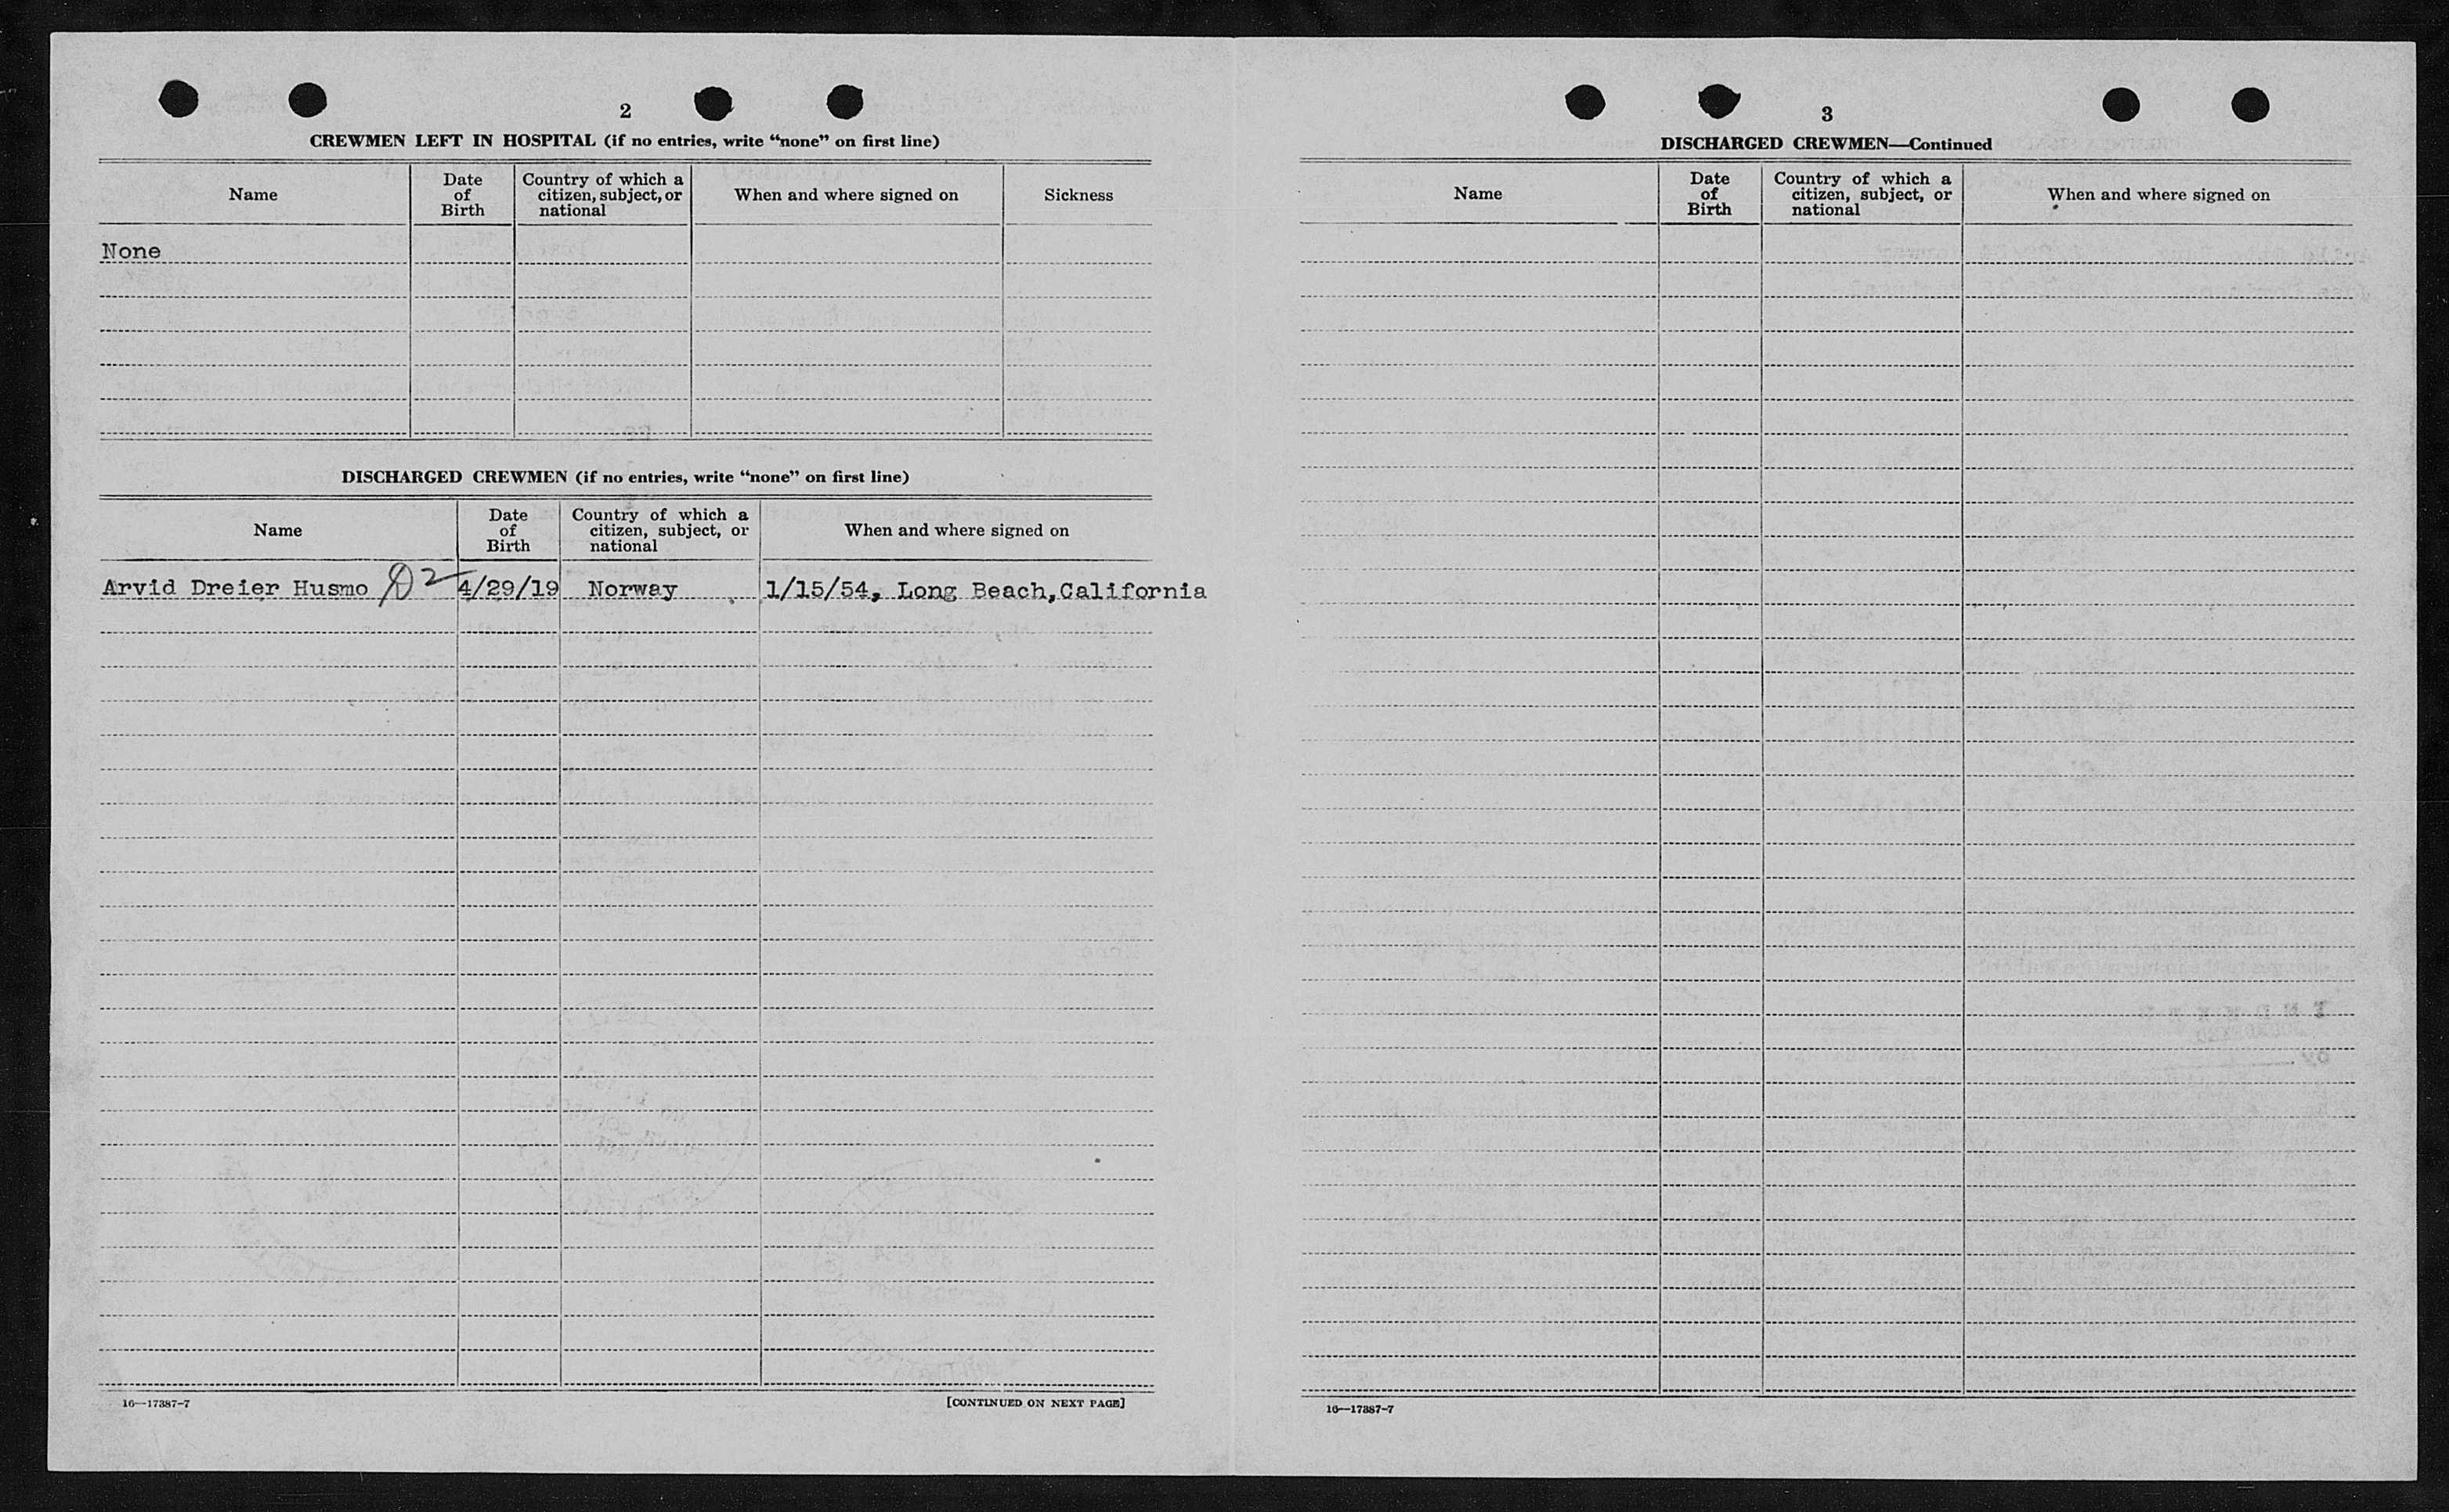 2
CREWMEN LEFT IN HOSPITAL (if no entries, write “none” on first line)
Name
Date of Birth
Country of which a citizen, subject, or national
When and where signed on
Sickness
None
DISCHARGED CREWMEN (if no entries, write “none” on first line)
Name
Date of Birth
Country of which a citizen, subject, or national
When and where signed on
Arvid Dreier Husmo D2 4/29/19 Norway 1/15/54, Long Beach,California
16—17387-7
[CONTINUED ON NEXT PAGE]
3
DISCHARGED CREWMEN—Continued
Name
Date of Birth
Country of which a citizen, subject, or national
When and where signed on
16—17387-7